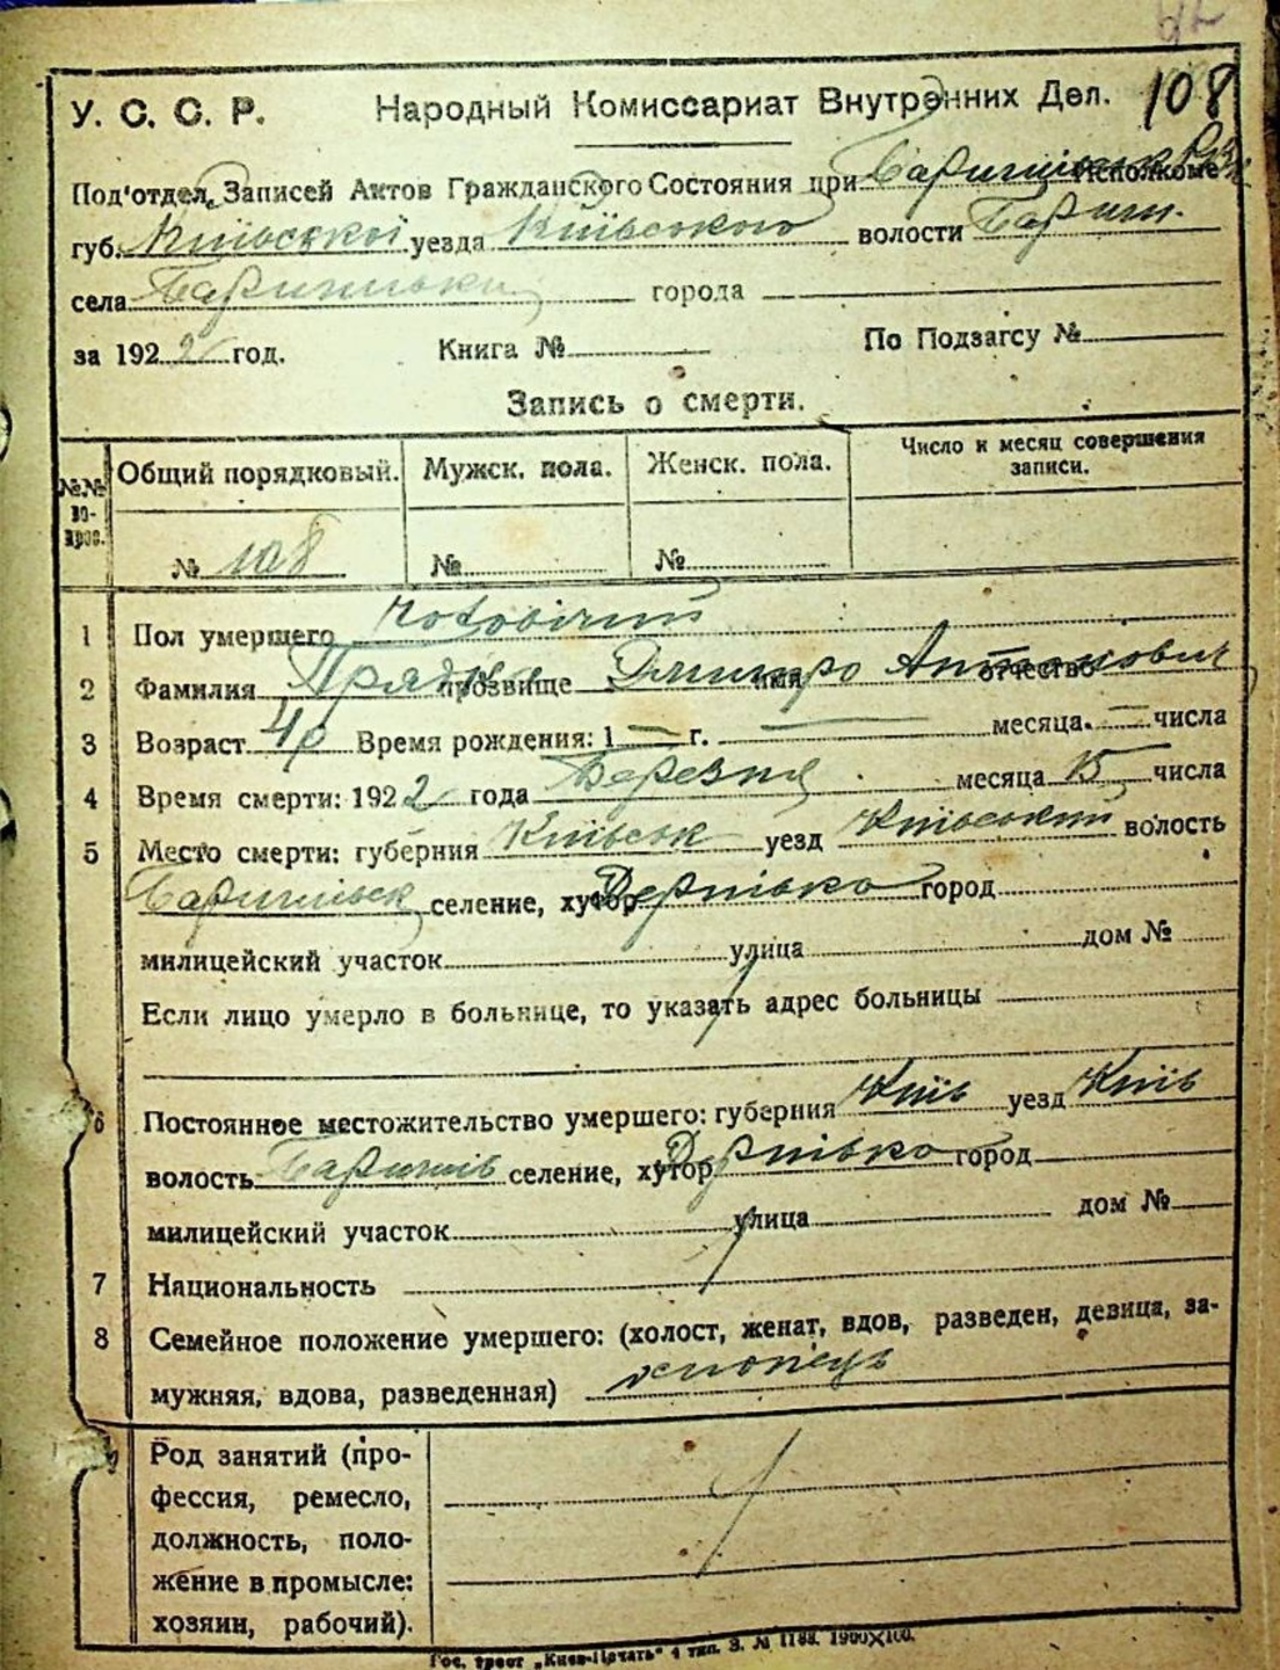 У. С. С. Р. Народный Комиссариат Внутренних Дел. 108
Под'отдел Записей Актов Гражданского Состояния при Исполкоме
губ. Київської уезда Київського волости Бариш.
села Баришівки города
за 1922 год. Книга № По Подзагсу №
Запись о смерти.
№№ во-прос. Общий порядковый. Мужск. пола. Женск. пола. Число и месяц совершения записи.
№ 108 № №
1 Пол умершего чоловічий
2 Фамилия прозвище Дмитро имя отчество
3 Возраст 4р Время рождения: 1 — г. — месяца. — числа
4 Время смерти: 1922 года Березня месяца 15 числа
5 Место смерти: губерния Київськ уезд Київський волость
Баришівськ селение, хутор Дернівка город
милицейский участок улица дом №
Если лицо умерло в больнице, то указать адрес больницы
6 Постоянное местожительство умершего: губерния Київ уезд Київ
волость Баришів селение, хутор Дернівка город
милицейский участок улица дом №
7 Национальность
8 Семейное положение умершего: (холост, женат, вдов, разведен, девица, за-
мужняя, вдова, разведенная) хлопець
9 Род занятий (про-
фессия, ремесло,
должность, поло-
жение в промысле:
хозяин, рабочий).
Гос. трест „Киев-Печать" 4 тип. З. № 1188. 1900×100.